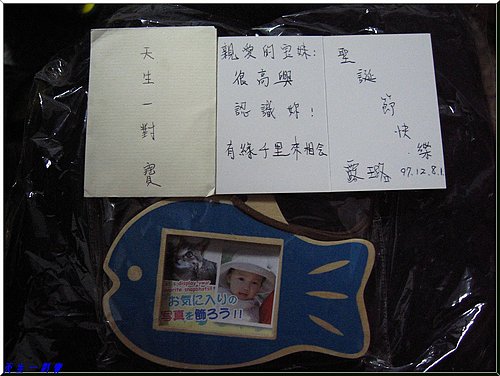 天生一對寶
親愛的雲妹：
很高興
認識妳！
有緣千里來相會
聖誕節快樂
97.12.8.
お気に入りの
写真を飾ろう!!
天生一對寶